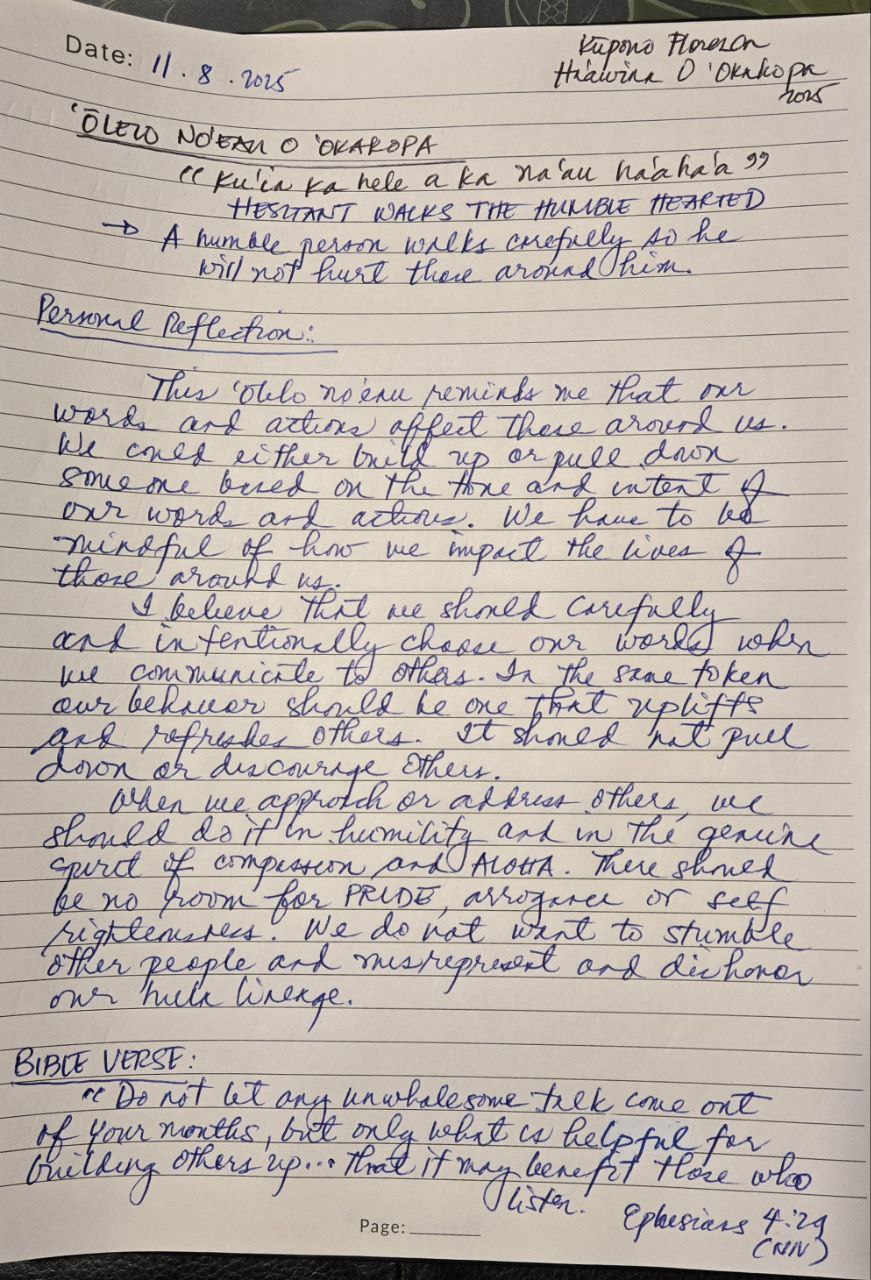 Date: 11.8.2025
Kūpono Floresca
Ha'awina O 'Okakopa
2025
'ŌLELO NO'EAU O 'OKAKOPA
"Ku'ia ka hele a ka na'au ha'aha'a"
HESITANT WALKS THE HUMBLE HEARTED
→ A humble person walks carefully so he
will not hurt those around him.
Personal Reflection:
This 'ōlelo no'eau reminds me that our
words and actions affect those around us.
We could either build up or pull down
someone based on the tone and intent of
our words and actions. We have to be
mindful of how we impact the lives of
those around us.
I believe that we should carefully
and intentionally choose our words when
we communicate to others. In the same token
our behavior should be one that uplifts
and refreshes others. It should not pull
down or discourage others.
When we approach or address others, we
should do it in humility and in the genuine
spirit of compassion and ALOHA. There should
be no room for PRIDE, arrogance or self
righteousness. We do not want to stumble
other people and misrepresent and dishonor
our hula lineage.
BIBLE VERSE:
"Do not let any unwholesome talk come out
of your mouths, but only what is helpful for
building others up... that it may benefit those who
listen.
Ephesians 4:29
Page: